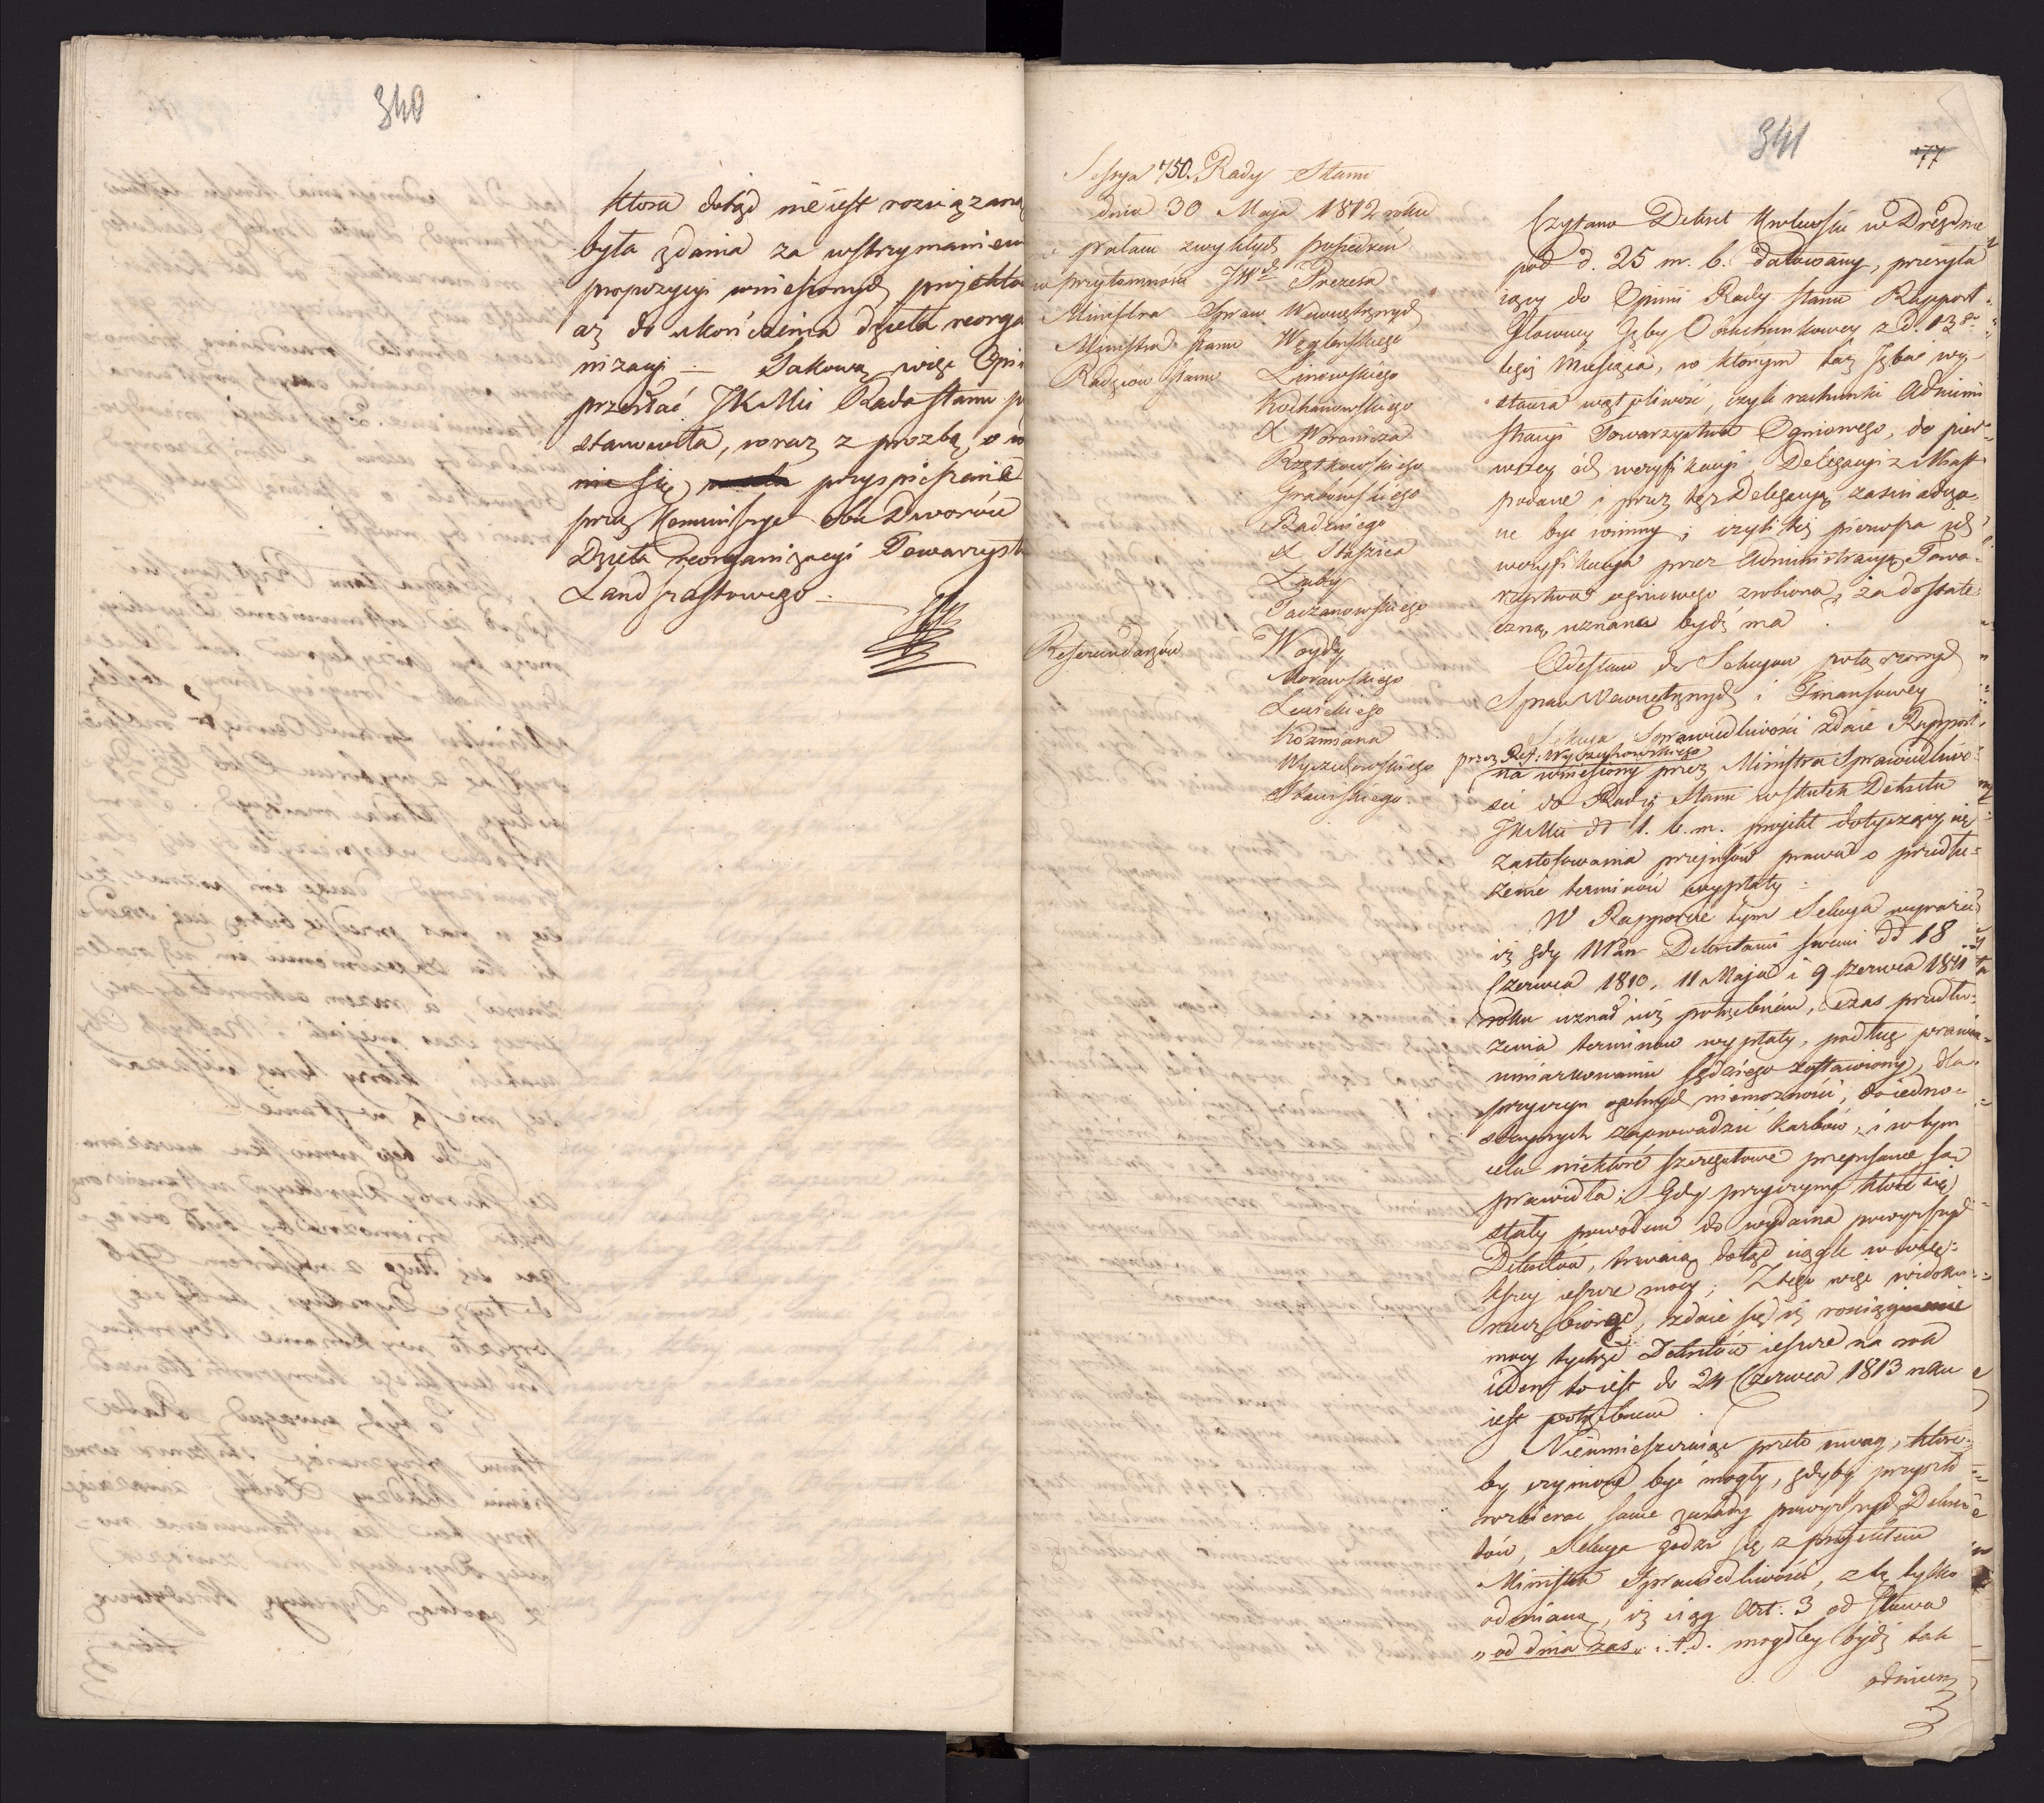 340
ktora dotąd nie iest rozwiązaną
była zdania za wstrzymaniem
propozycyi wniesionych projektow
aż do ukończenia dzieła reorga
nizacyi — Takową więc Opi
przesłać JKMci Rada Stanu po
stanowiła, wraz z prozbą, o
nie się przyspieszenie
przez Kommissye obu Dworów
Dzieła reorganizacyi Towarzyst
Landszaftowego.
341
77
Sessya 750. Rady Stanu
dnia 30 Maja 1812 roku
w pałacu zwykłych posiedzeń
w przytomności JWch Prezesa
Ministra Spraw Wewnętrznych
Ministra Stanu Węgleńskiego
Radzców Stanu Linowskiego
Kochanowskiego
X Woronicza
Rzętkowskiego
Grabowskiego
Badeniego
X Staszica
Łuby
Taczanowskiego
Referendarzów Woydy
Morawskiego
Lewickiego
Koźmiana
Wyczechowskiego
Stawskiego.
Czytano Dekret Królewski w Dreznie
pod d. 25 m. b. datowany, przesyła
iący do Opinii Rady Stanu Rapport
Głowney Izby Obrachunkowey z d. 13go
tegoż Miesiąca, w którym taż Izba wy
stawia wątpliwość, czyli rachunki Admini
stracyi Towarzystwa Ogniowego, do pier
wszey ich weryfikacyi, Delegacyi z Miast
podane i przez tęż Delegacyą zaświadczo
ne być winny; czyli też pierwsza ich
weryfikacya przez Administracyą Towa
rzystwa ogniowego zrobiona, za dostate
czną uznana bydź ma.
Odesłano do Sekcyow połączonych
Spraw Wewnętrznych i Finansowey
Sekcya Sprawiedliwości zdaie Rapport
przez Ref: Wyczechowskiego
na wniesiony przez Ministra Sprawiedliwo
ści do Rady Stanu wskutek Dekretu
JKMci dd 1. b. m. projekt dotyczący się
zastosowania przepisów prawa o przedłu
żenie terminów wypłaty:
W Rapporcie tym Sekcya wyraża
iż gdy NPan Dekretami swemi dd 18
Czerwca 1810, 11 Maja i 9 Czerwca 1811
roku uznał iuż potrzebnem, czas przedłu
żenia terminow wypłaty, podług prawa
umiarkowaniu sędziego zostawiony, dla
przyczyn ogolnych niemożności, do iedno
staynych zaprowadzić karbów, i w tym
celu niektóre szczegułowe przepisane są
prawidła; Gdy przyczyny które się
stały powodem do wydania powyższych
Dekretów, trwaią dotąd ciągle w więk
szey ieszcze mocy; Z tego więc widoku
rzecz biorąc, zdaie się iż rozciągnienie
mocy tychże Dekretów ieszcze na rok
ieden to iest do 24 Czerwca 1813 roku
iest potrzebnem.
Nieumieszczaiąc przeto uwag, które
by czynione być mogły, gdyby przyszło
rozbierać same zasady powyższych Dekre
tów, Sekcya godzi się z projektem
Ministra Sprawiedliwości, z tą tylko
odmianą, iż ciąg Art. 3 od słowa
„od dnia zaś„ i. t. d. mogłby bydź tak
odmien